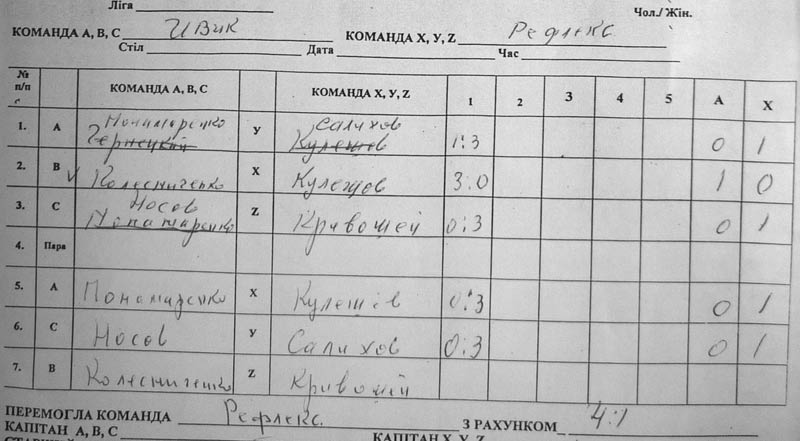 Ліга Чол./ Жін.
КОМАНДА А, В, С Ивик КОМАНДА Х, У, Z Рефлекс
Стіл Дата Час
№ п/п КОМАНДА А, В, С КОМАНДА Х, У, Z 1 2 3 4 5 А Х
Пономаренко Салихов
1. А Чернецкий У Кулешов 1:3 0 1
2. В Колесниченко Х Кулешов 3:0 1 0
Носов
3. С Понамаренко Z Кривошей 0:3 0 1
4. Пара
5. А Понамаренко Х Кулешов 0:3 0 1
6. С Носов У Салихов 0:3 0 1
7. В Колесниченко Z Кривошей
ПЕРЕМОГЛА КОМАНДА Рефлекс З РАХУНКОМ 4:1
КАПІТАН А, В, С КАПІТАН Х, У, Z